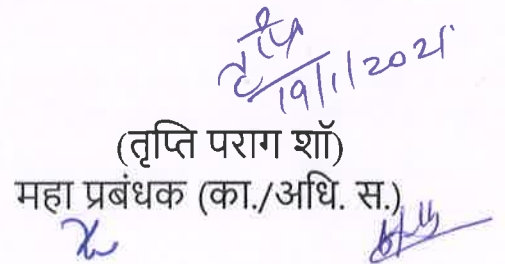 तृप्ति
19/1/2021
(तृप्ति पराग शॉ)
महा प्रबंधक (का./अधि. स.)